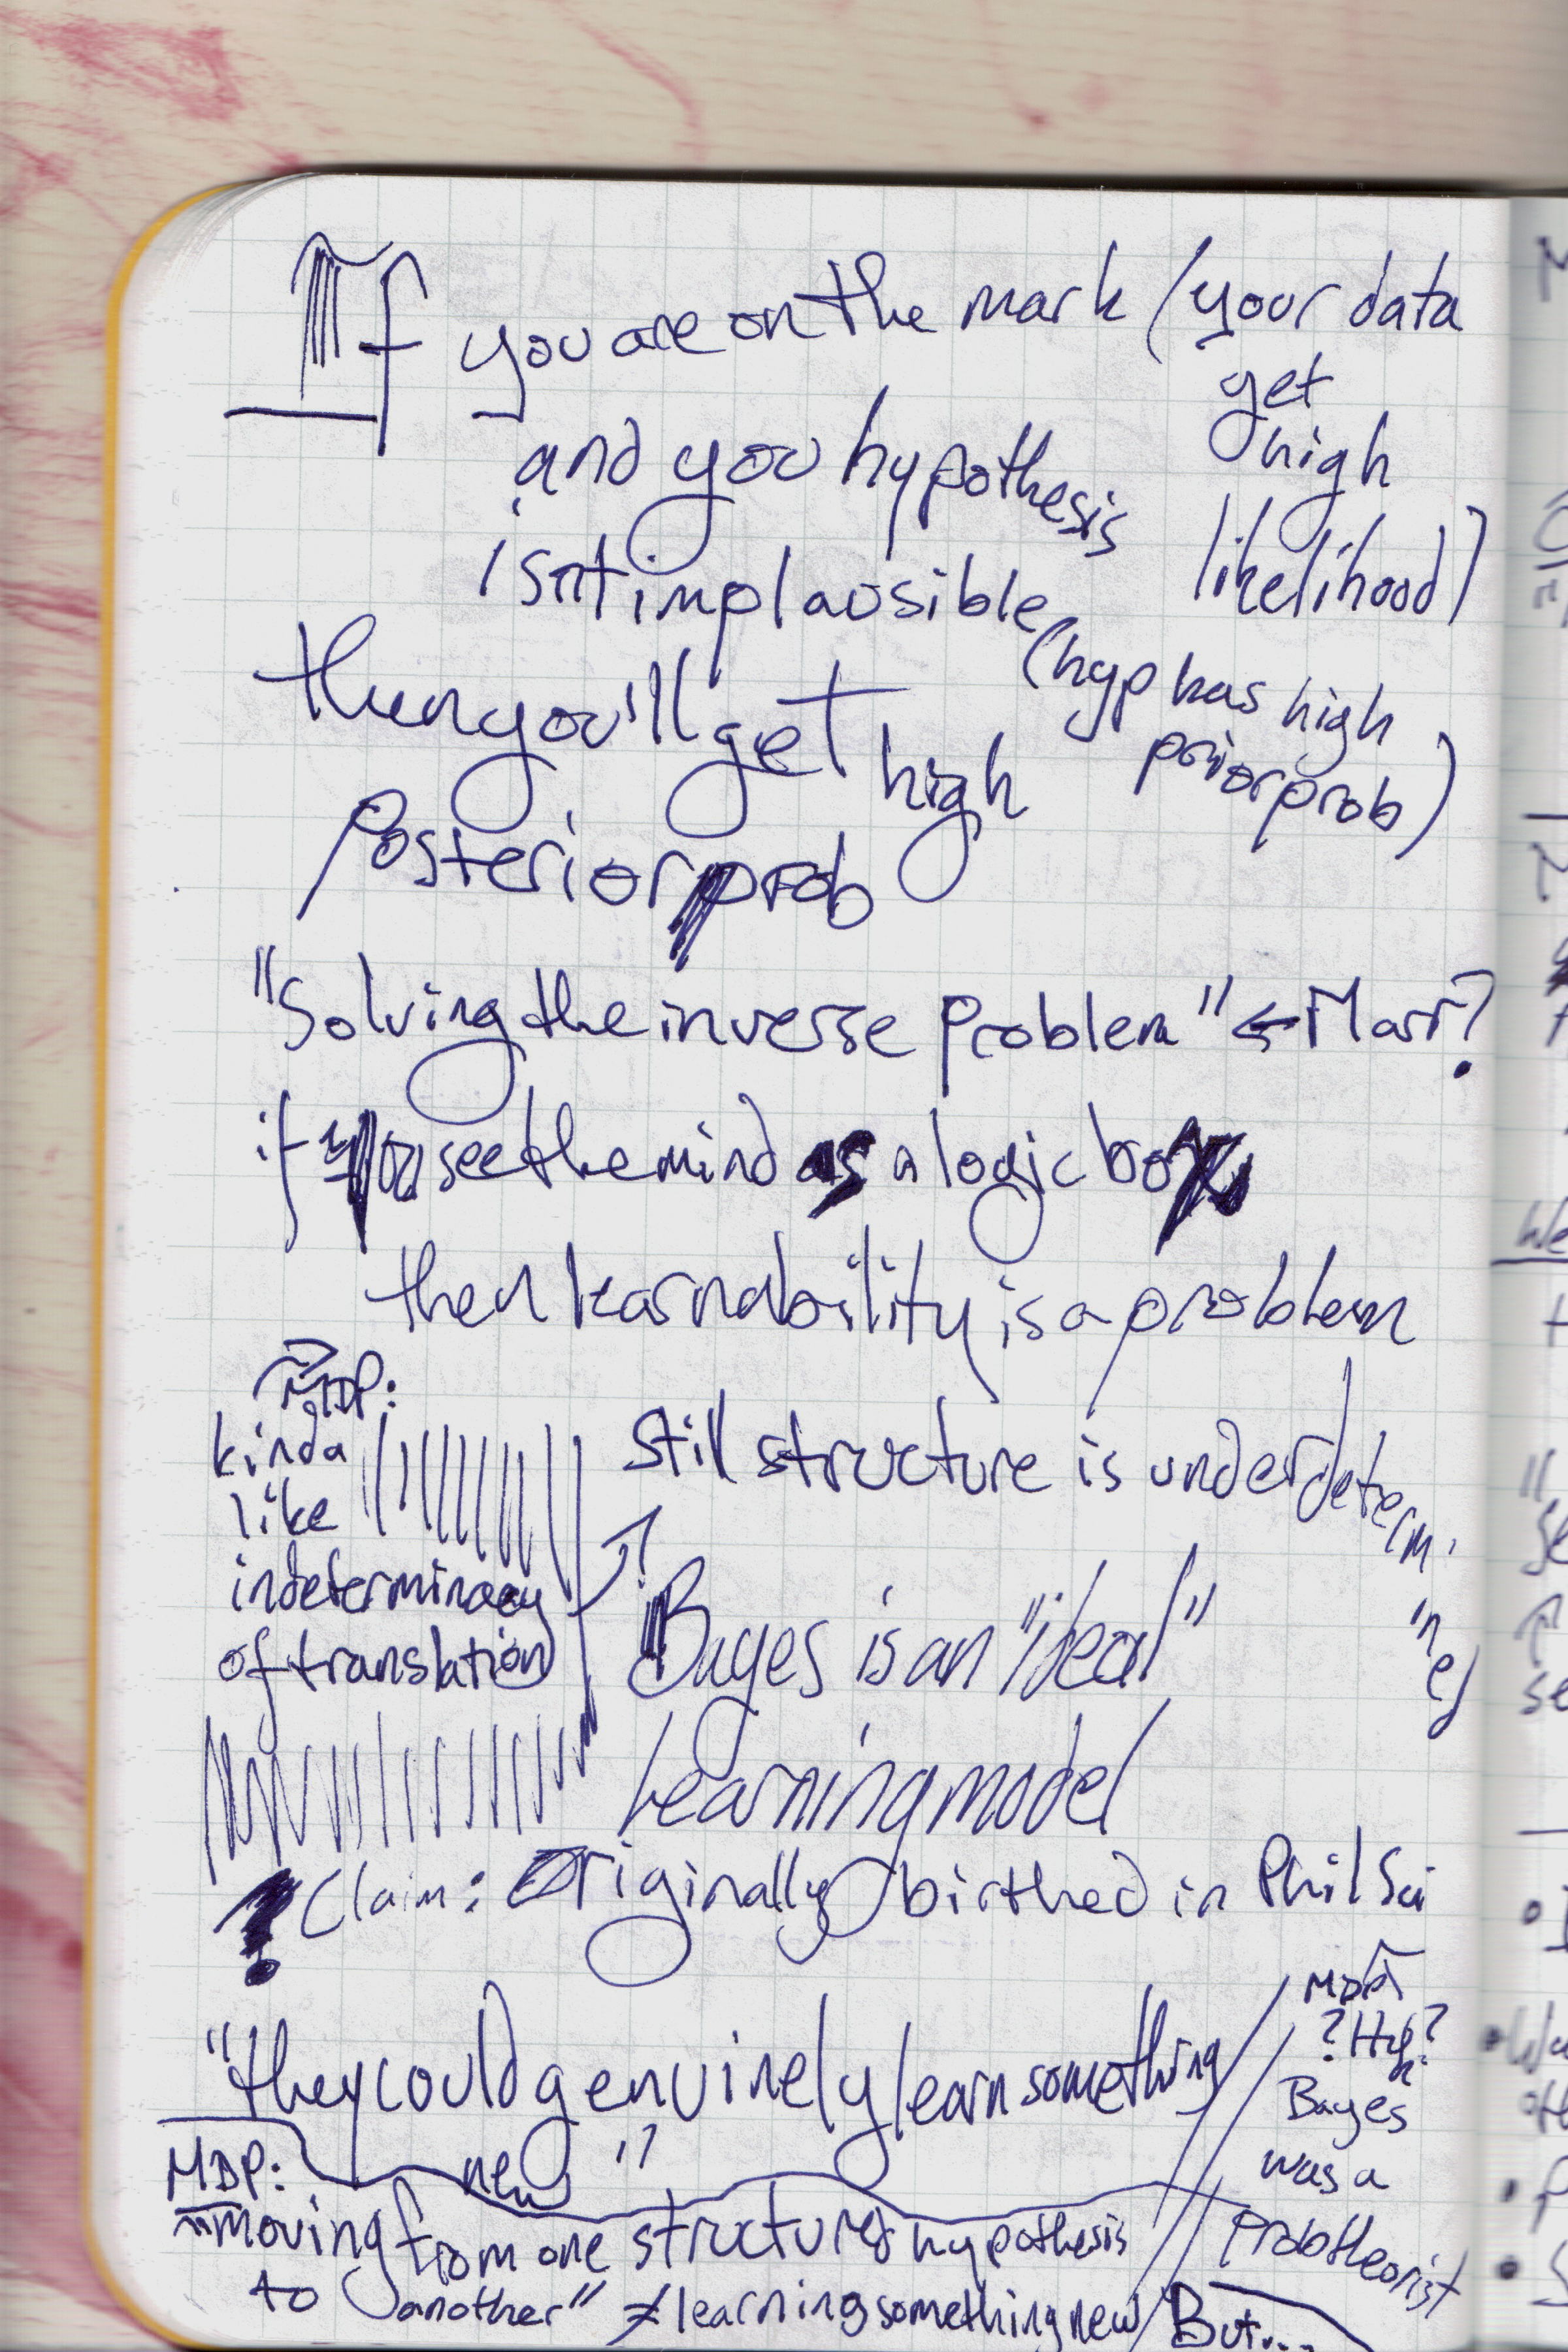 If you are on the mark (your data
get
high
likelihood)
and you hypothesis
isnt implausible
(hyp has high
prior prob)
then you'll get high
Posterior prob
"Solving the inverse problem" ← Marr?
if you see the mind as a logic box
then learnability is a problem
MDP:
kinda
like
indeterminacy
of translation
Still structure is underdetermi
ned
Bayes is an "ideal"
Learning model
? Claim: Originally birthed in Phil Sci
"they could genuinely learn something
new"
MDP:
?Huh?
Bayes
was a
Prob theorist
But...
MDP:
"moving from one structured hypothesis
to another" ≠ learning something new